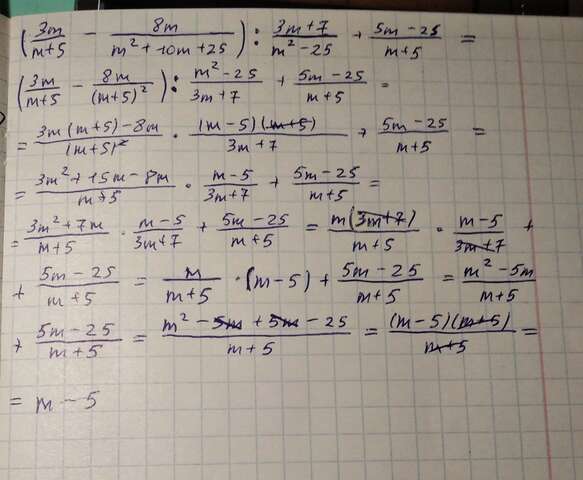 (3m/(m+5) - 8m/(m²+10m+25)) : (3m+7)/(m²-25) + (5m-25)/(m+5) =
(3m/(m+5) - 8m/(m+5)²) : (m²-25)/(3m+7) + (5m-25)/(m+5) =
= (3m(m+5)-8m)/(m+5)² · ((m-5)(m+5))/(3m+7) + (5m-25)/(m+5) =
= (3m²+15m-8m)/(m+5) · (m-5)/(3m+7) + (5m-25)/(m+5) =
= (3m²+7m)/(m+5) · (m-5)/(3m+7) + (5m-25)/(m+5) = m(3m+7)/(m+5) · (m-5)/(3m+7) +
+ (5m-25)/(m+5) = m/(m+5) · (m-5) + (5m-25)/(m+5) = (m²-5m)/(m+5)
+ (5m-25)/(m+5) = (m²-5m+5m-25)/(m+5) = ((m-5)(m+5))/(m+5) =
= m-5